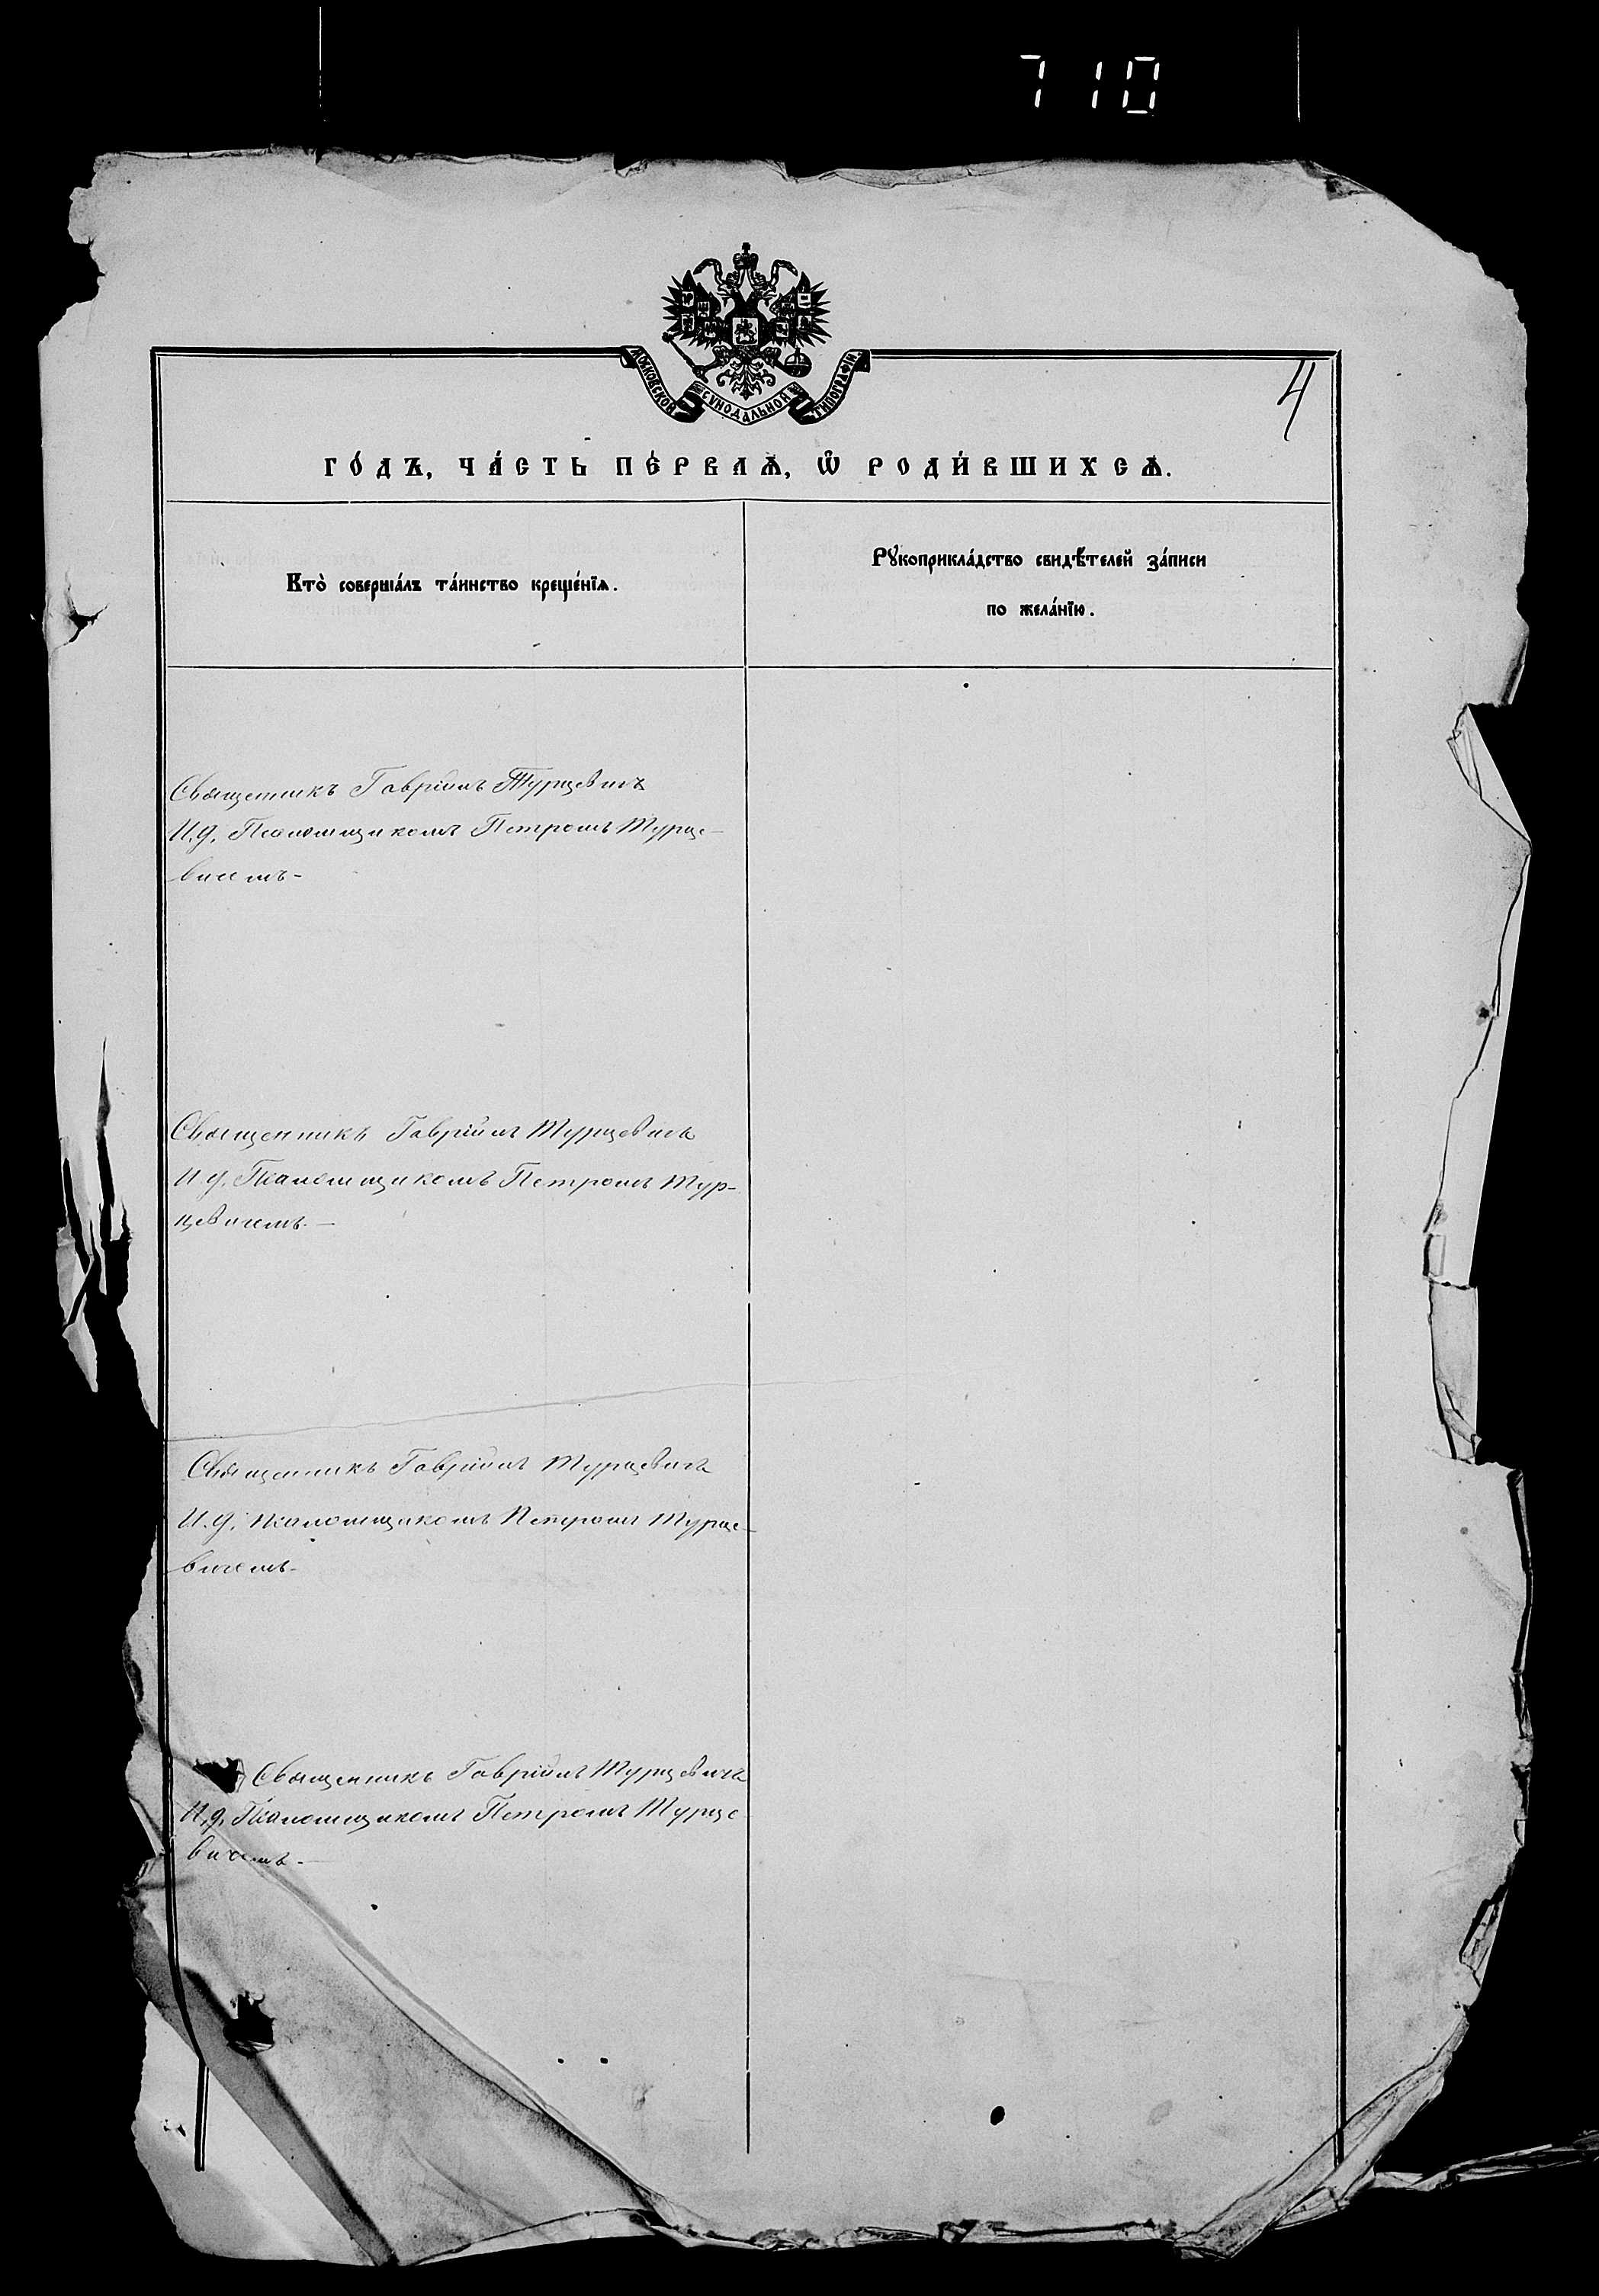 710
4
МОСКОВСКОЙ СѴНОДАЛЬНОЙ ТИПОГРАФІИ.
ГО́ДЪ, ЧА́СТЬ ПЕ́РВАѦ, Ѡ҆ РОДИ́ВШИХСѦ.
Кто̀ соверша́лъ та́инство креще́нїѧ.
Рꙋкоприкла́дство свидѣ́телей за́писи
по жела́нїю.
Священникъ Гавріилъ Турцевичъ
И.д. Псаломщикомъ Петромъ Турце-
вичемъ-
Священникъ Гавріилъ Турцевичъ
И.д. Псаломщикомъ Петромъ Тур-
цевичемъ.-
Священникъ Гавріилъ Турцевичъ
И.д. псаломщикомъ Петромъ Турце-
вичемъ-
Священникъ Гавріилъ Турцевичъ
И.д. Псаломщикомъ Петромъ Турце
вичемъ.-